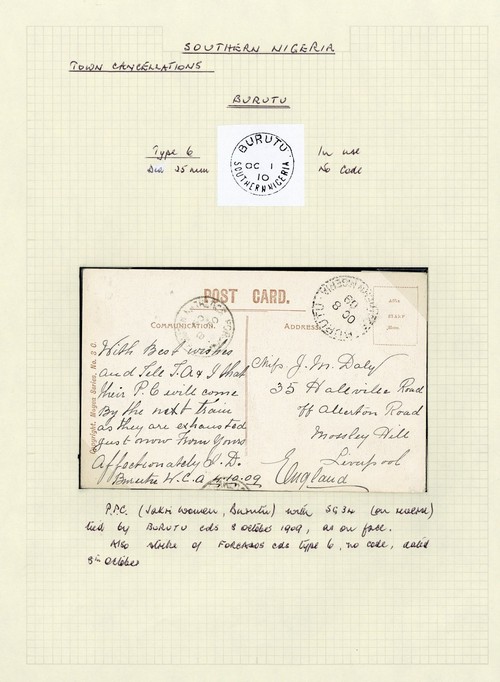 SOUTHERN NIGERIA
TOWN CANCELLATIONS
BURUTU
Type 6
Dia 25mm
BURUTU
OC 1
10
SOUTHERN NIGERIA
In use
No Code
POST CARD.
COMMUNICATION.
ADDRESS
BURUTU
OC 8
09
With Best wishes
and Tell T.A & I that
their P.C will come
By the next train
as they are exhausted
just now From Yours
Affectionately J. D.
Burutu W.C.A 4.10.09
Miss J. M. Daly
35 Hallville Road
off Allerton Road
Mossley Hill
Liverpool
England
P.P.C. (Jakri Women, Burutu) with SG34 (on reverse)
tied by BURUTU cds 8 October 1909, as on face.
Also strike of FORCADOS cds type 6, no code, dated
8th October